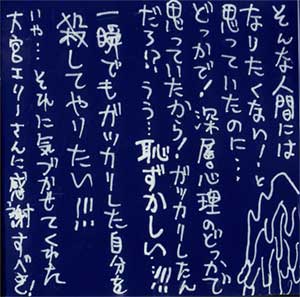 そんな人間には
なりたくない！と
思っていたのに…
どっかで！深層心理のどっかで
思っていたから！ガッカリしたん
だろ！？うう…恥ずかしい…!!!
一瞬でもガッカリした自分を
殺してやりたい!!!
いや…それに気づかせてくれた
大宮エリーさんに感謝すべき！